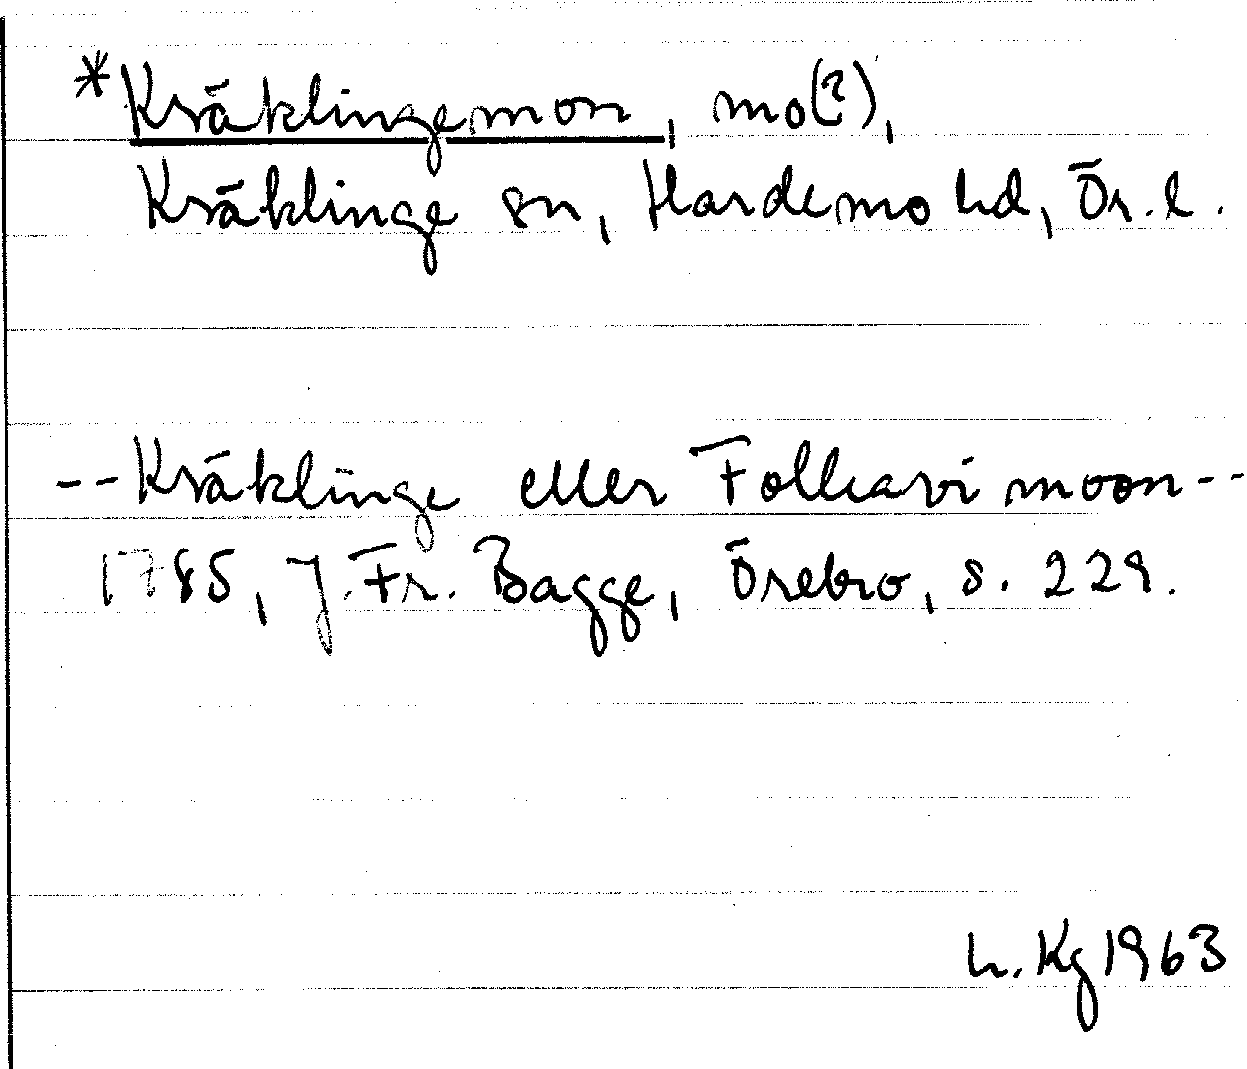 *Kräklingemon, mo(?),
Kräklinge sn, Hardemo hd, Ör. l.
--Kräklinge eller Folkavi moon--
1785, J. Fr. Bagge, Örebro, s. 229.
h. Kg 1963